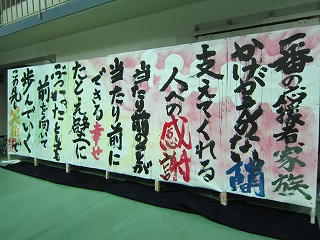 一番の応援者家族
かけがえのない間
支えてくれる
人への感謝
当たり前のことが
当たり前に
できる幸せ
たとえ壁に
ぶつかったとしても
前を向いて
歩んでいく